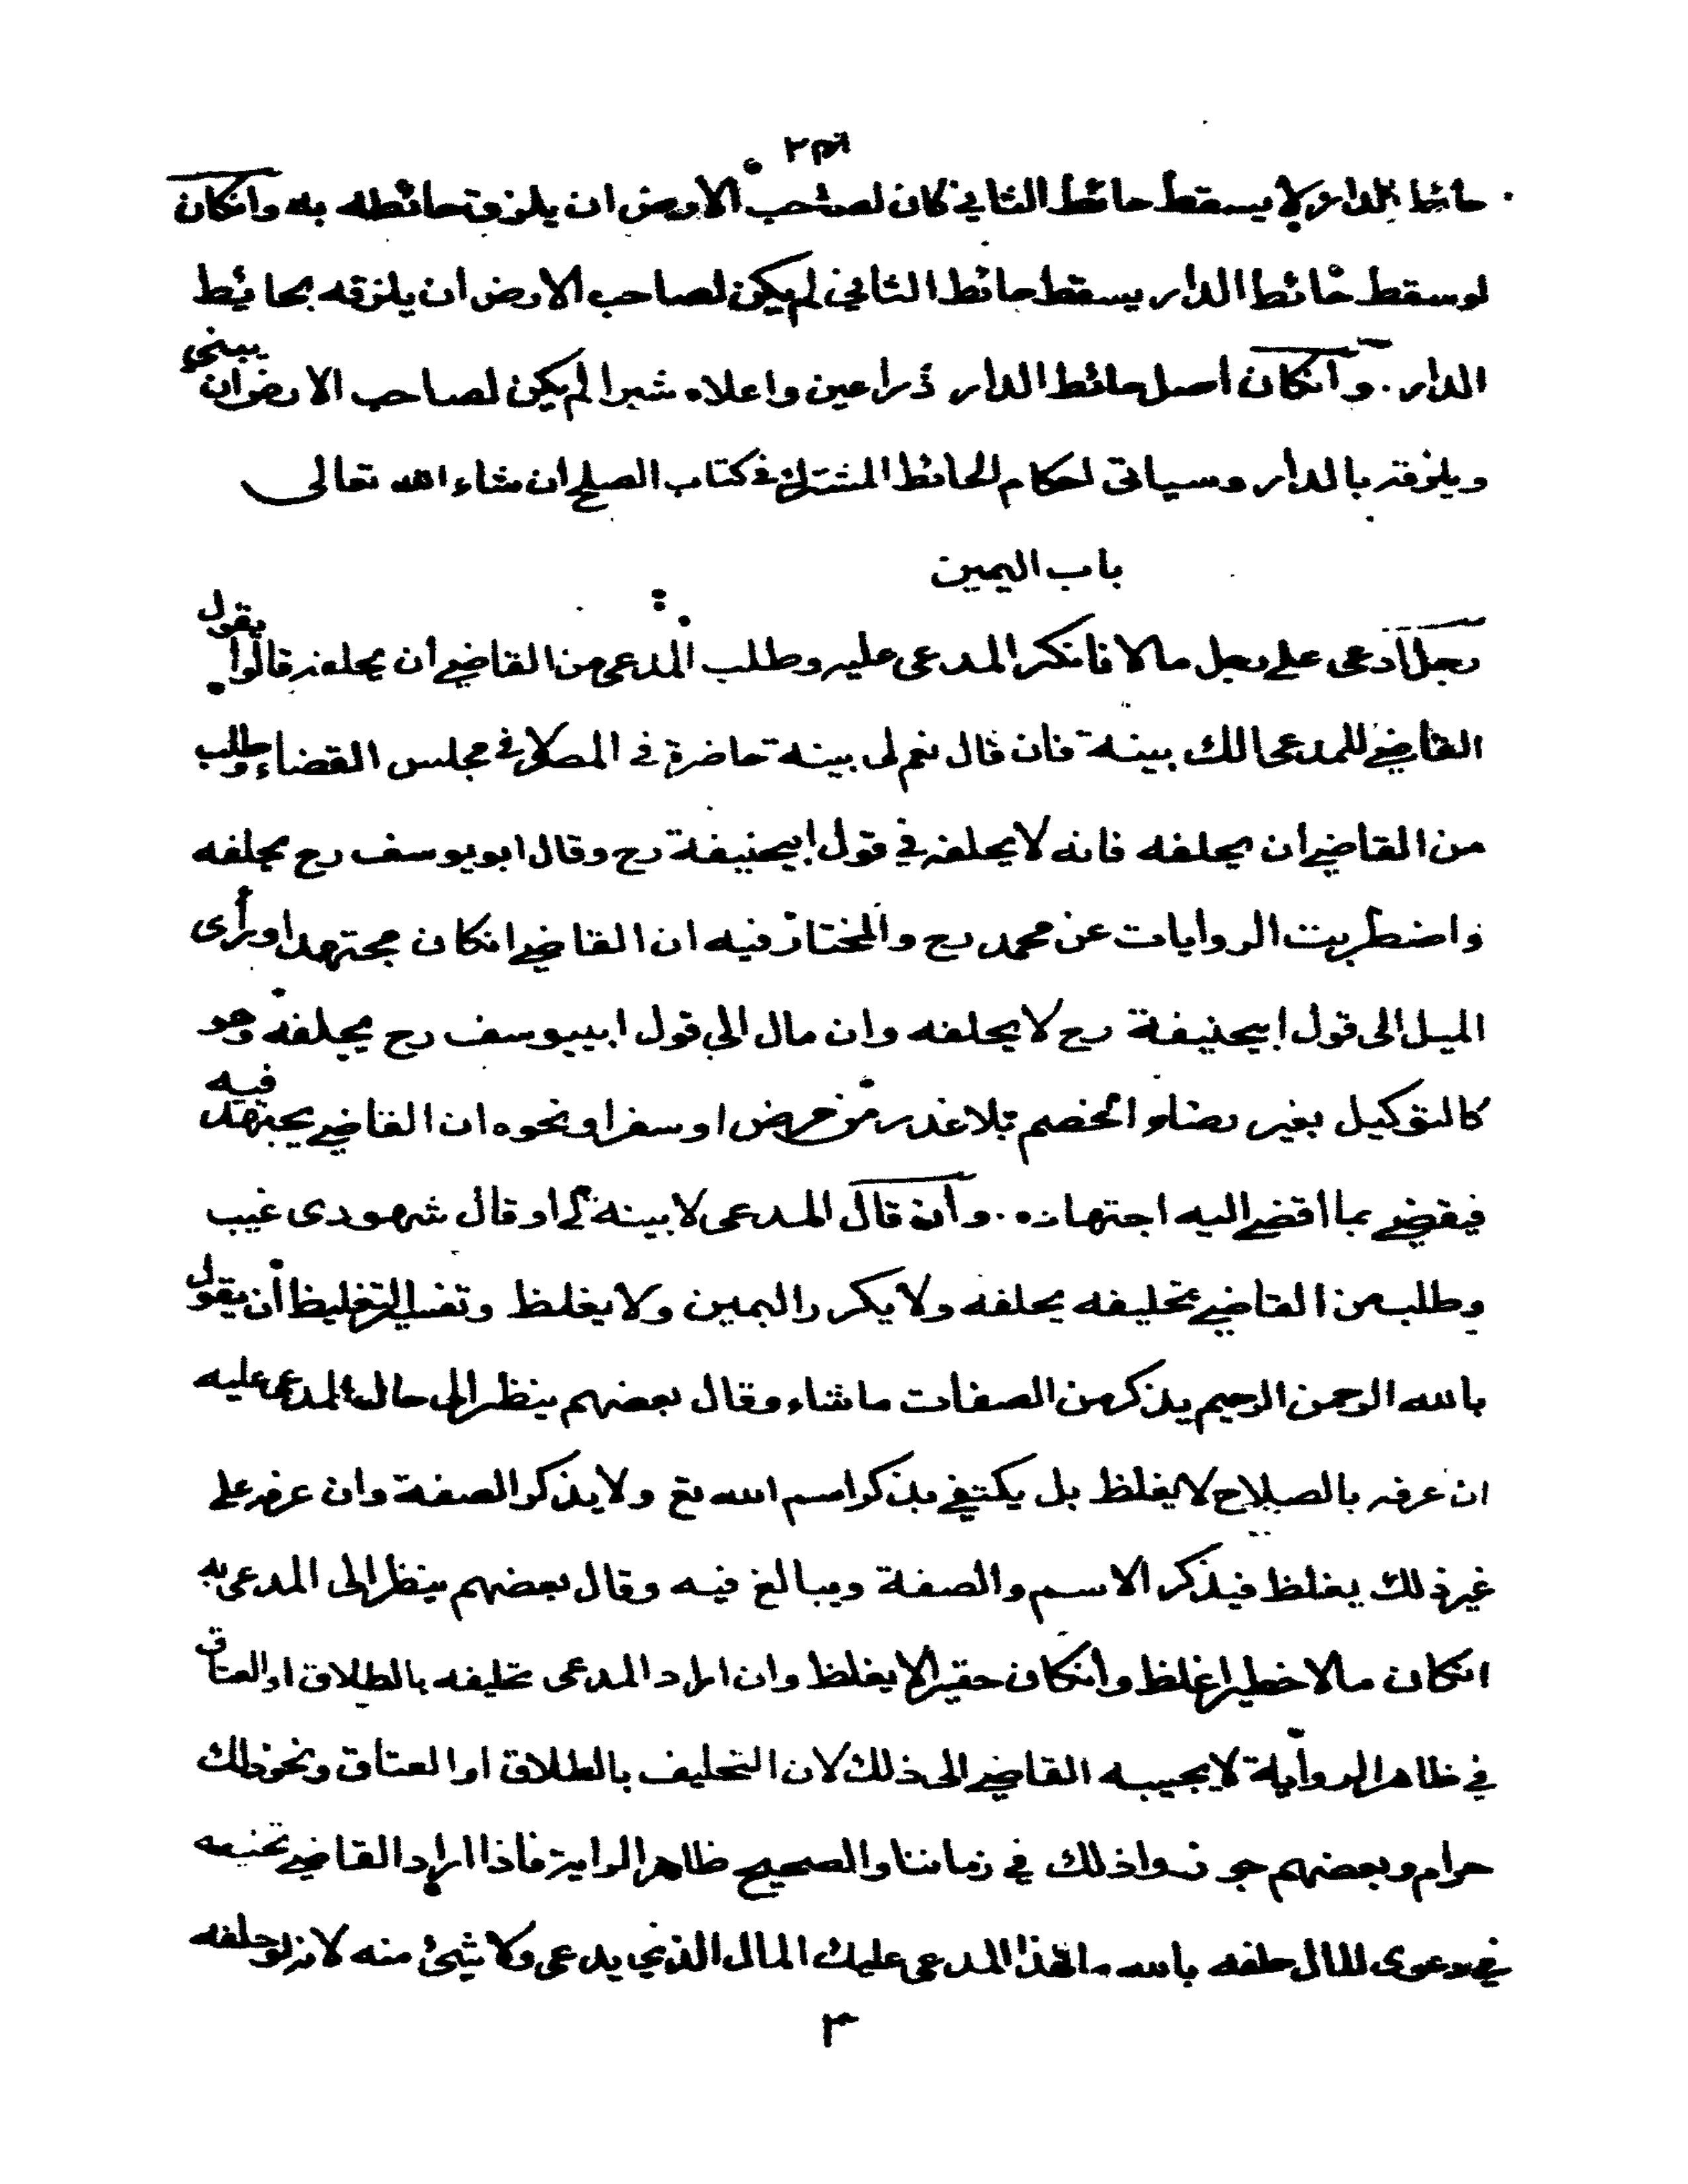 حائط الدار ولا يسقط حائط الثاني كان لصاحب الارض ان يلزق حائطه به وانكان
لوسقط حائط الدار يسقط حائط الثاني لم يكن لصاحب الارض ان يلزقه بحائيط
الدار . وانكان اصل حائط الدار ذراعين واعلاه شبرا لم يكن لصاحب الارض ان يبني
ويلزقه بالدار وسياتى احكام الحائط المشترك في كتاب الصلح ان شاء الله تعالى
باب اليمين
رجل ادعى على رجل مالا فانكر المدعى عليه وطلب المدعى من القاضي ان يحلفه قالوا يقول
القاضي للمدعى الك بينة فان قال نعم لى بينة حاضرة في المصلا في مجلس القضاء وطلب
من القاضي ان يحلفه فانه لا يحلفه في قول ابيحنيفة رح وقال ابو يوسف رح يحلفه
واضطربت الروايات عن محمد رح والمختار فيه ان القاضي انكان مجتهدا ورأى
الميل الى قول ابيحنيفة رح لا يحلفه وان مال الى قول ابييوسف رح يحلفه وهو
كالتوكيل بغير رضاء الخصم بلا عذر من مرض او سفر او نحوه ان القاضي يجتهد فيه
فيقضي بما افضى اليه اجتهاده . وان قال المدعى لا بينة لي او قال شهودى غيب
وطلب من القاضي تحليفه يحلفه ولا يكرر اليمين ولا يغلظ وتفسير التغليظ ان يقول
بالله الرحمن الرحيم يذكر من الصفات ما شاء وقال بعضهم ينظر الى حال المدعى عليه
ان عرفه بالصلاح لا يغلظ بل يكتفي بذكر اسم الله تع ولا يذكر الصفة وان عرفه على
غير ذلك يغلظ فيذكر الاسم والصفة ويبالغ فيه وقال بعضهم ينظر الى المدعى به
انكان مالا خطيرا غلظ وانكان حقيرا لا يغلظ وان اراد المدعى تحليفه بالطلاق او العتاق
في ظاهر الرواية لا يجيبه القاضي الى ذلك لان التحليف بالطلاق او العتاق ونحو ذلك
حرام وبعضهم جوزوا ذلك في زماننا والصحيح ظاهر الرواية فاذا اراد القاضي
في دعوى المال حلفه بالله ما لهذا المدعى عليك المال الذي يدعى ولا شيئ منه لانه لو حلفه
٣